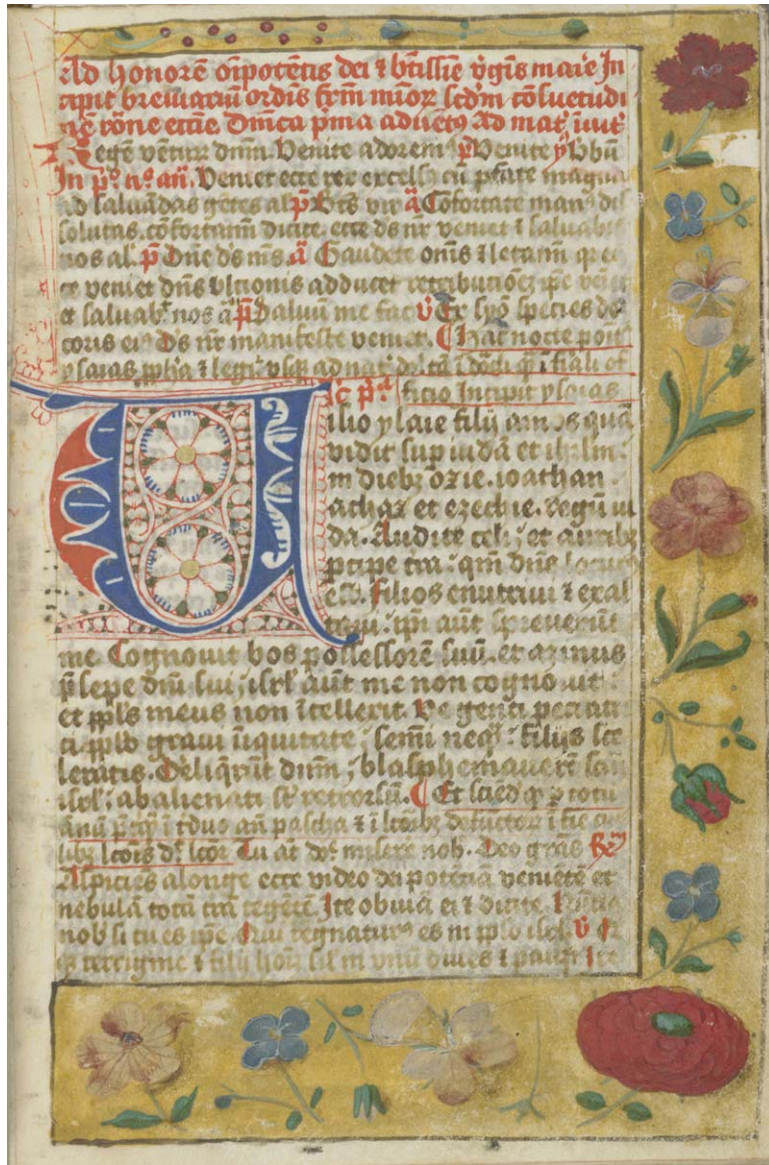 Ad honorē oīpotētis dei ⁊ btīssīe v̄gīs marīe In
cipit breviariū ordīs frm̄ mīoꝝ scd̄m cōsuetudi
nē rōne eccīe. Dn̄ica p̄ma advētꝰ Ad mat̄ īvit
Regē vētuꝝ dn̄m. Venite adoremꝰ p̄ Venite
In p̄º nº an̄. Veniet ecce rex excelsꝰ cū ptāte magna
ad salvādas gētes al p̄ Bt̄s vir ā Cōfortate manꝰ dis
solutas. cōfortamī dicite. ecce ds̄ nr̄ veniet ⁊ salvabit
nos al. p̄ Dn̄e ds̄ ms̄. ā Gaudete om̄s ⁊ letamī q̄ ec
ce veniet dn̄s ultionis adducet retributiōeꝫ ip̄e veniet
et salvabꝫ nos ā p̄ Salvū me fac v̄ Ex syō species de
coris eiꝰ Ds̄ nr̄ manifeste veniet. Hac nocte
ysaias ꝓph̄a ⁊ legit̄ usqꝫ ad nat̄
ficio Incipit ysaias
isio ysaie filij amos quā
vidit sup iudā et ihrlm̄
in diebꝫ ozie. ioathan
achaz et ezechie. regū iu
da. Audite celi, et auribꝫ
ꝑcipe tr̄a. qm̄ dn̄s locutꝰ
est. Filios enutrivi ⁊ exal
tavi. ip̄i aūt spreverūt
me. Cognovit bos possessorē suū. et azinus
p̄sepe dn̄i sui, isrl̄ aūt me non cognovit
et ppl̄s meus non ītellexit. Ve genti peccat
ci pplō gravi īiquitate, semī neqꝫ, filijs sce
leratis. Deliq̄rūt dn̄m, blasphemaverūt scm̄
isrl̄, abalienati st̄ retrorsū. Et sciēd q̄ ꝑ totū
ānū
Tu aūt dn̄e miserē nob. Deo grās
Aspiciēs alonge ecce video dei potētiā venietē et
nebulā totā trā tegētē Ite obviā ei ⁊ dicite. Nūtia
nob si tu es ip̄e. Qui regnaturꝰ es in pplō isrl̄. v̄
qꝫ terrigine ⁊ filij hoīū sil̄ in unū dives ⁊ paup̄